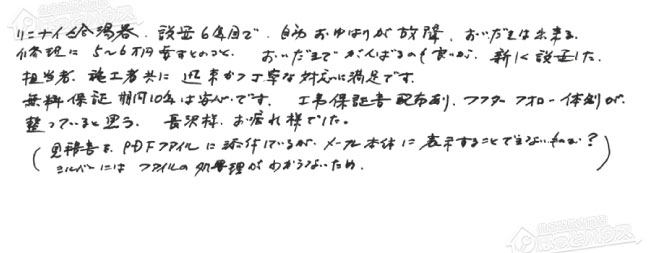 リンナイ給湯器、設置6年目で、自動お湯はりが故障、おいだきは出来る。
修理に5〜6万円要すとのこと。おいだきでがんばるのも良いが、新しく設置した。
担当者、施工者共に迅速かつ丁寧な対応に満足です。
無料保証期間10年は安心です。工事保証書配布あり、アフターフォロー体制が、
整っていると思う。長沢様、お疲れ様でした。
(見積書を、PDFファイルに添付しているが、メール本体に表示することできないものか?
シルバーにはファイルの処理がわからないため。)